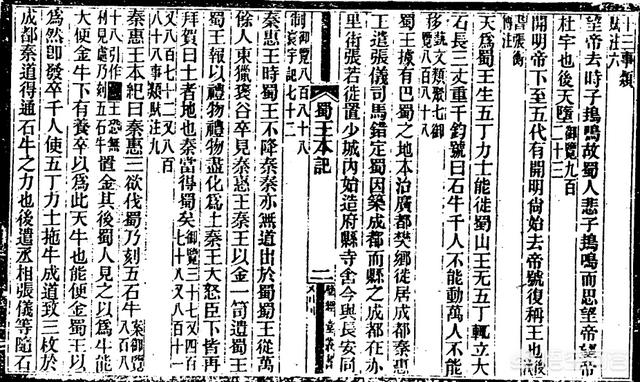 十三事類
賦注六
望帝去時子𢳣鳴故蜀人悲子𢳣鳴而思望帝望帝
杜宇也後天墮御覽九百
二十三
開明帝下至五代有開明尚始去帝號復稱王也後
書張衡
傳注
天爲蜀王生五丁力士能徙蜀山王无五丁輒立大
石長三丈重千鈞號曰石牛千人不能動萬人不能
移藝文類聚七御
覽八百八十八
蜀王據有巴蜀之地本治廣都樊鄉徙居成都秦惠
王遣張儀司馬錯定蜀因築成都而縣之成都在赤
里街張若徙置少城內始造府縣寺舍今與長安同
制御覽八百八十八
寰宇記七十二
蜀王本記
二
秦惠王時蜀王不降秦秦亦無道出於蜀蜀王從萬
餘人東獵褒谷卒見秦惠王秦王以金一笥遺蜀王
蜀王報以禮物禮物盡化爲土秦王大怒臣下皆再
拜賀曰土者地也秦當得蜀矣御覽三十七又四百
七十八又八百一十一
又八百七十二又八百
八十八事類賦注九
秦惠王本紀曰秦惠王欲伐蜀乃刻五石牛案御覽
八百八
十八引作王恐無
相見處乃刻五石牛置金其後蜀人見之以爲牛能
大便金牛下有養卒以爲此天牛也能便金蜀王以
爲然即發卒千人使五丁力士拖牛成道致三枚於
成都秦道得通石牛之力也後遣丞相張儀等隨石